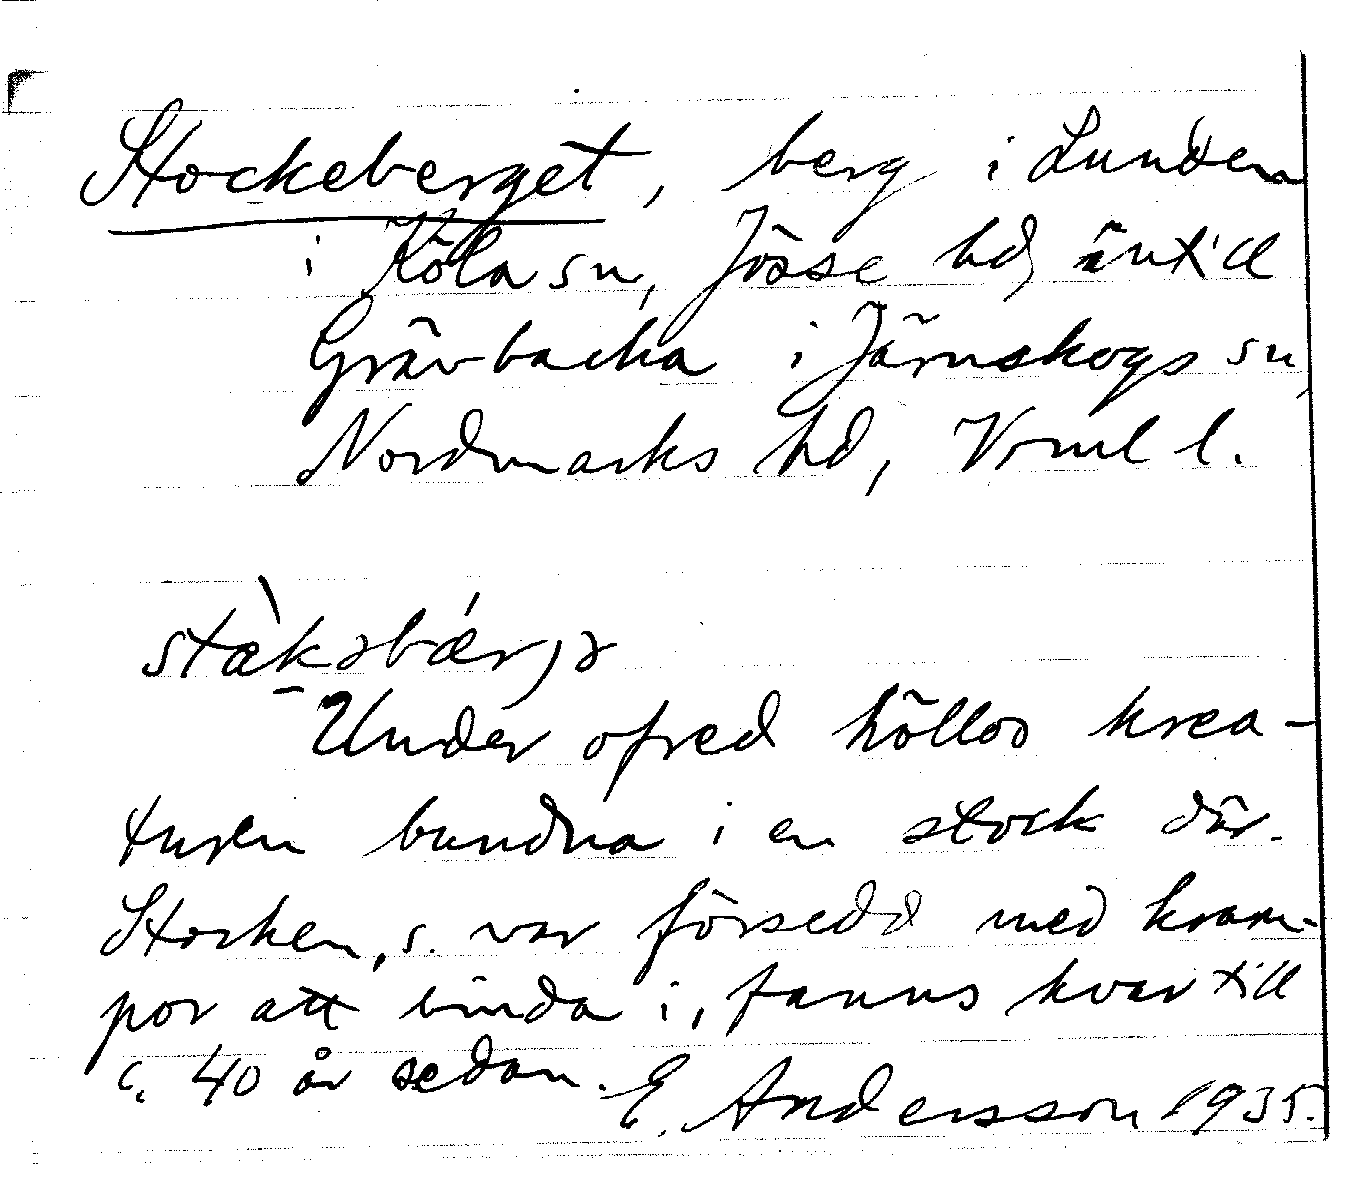 Stockeberget, berg i Lunden
i Köla sn, Jösse hd, intill
Grävbacka i Järnskogs sn,
Nordmarks hd, Vrml l.
stæ̀kəbǽrjə
Under ofred höllos krea-
turen bundna i en stock där.
Stocken, s. var försedd med kram-
por att binda i, fanns kvar till
c. 40 år sedan. E. Andersson 1935.